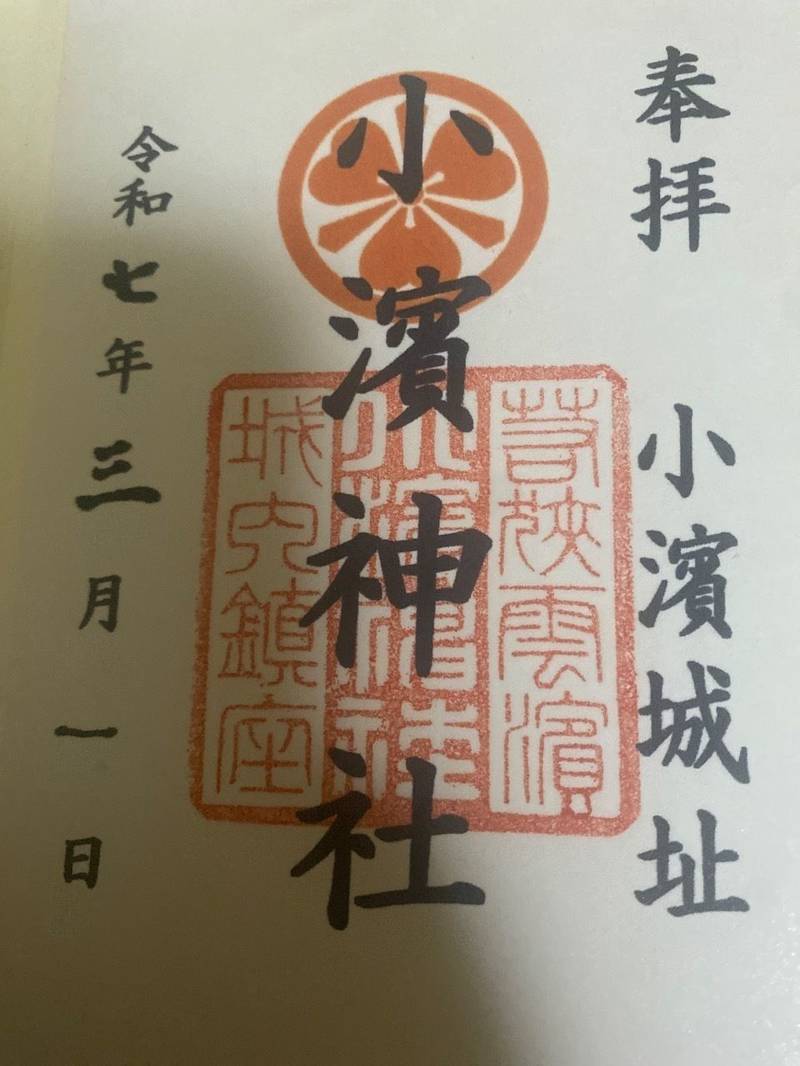 奉拝
小濱城址
小濱神社
若狹雲濱
小濱神社
城内鎮座
令和七年三月一日